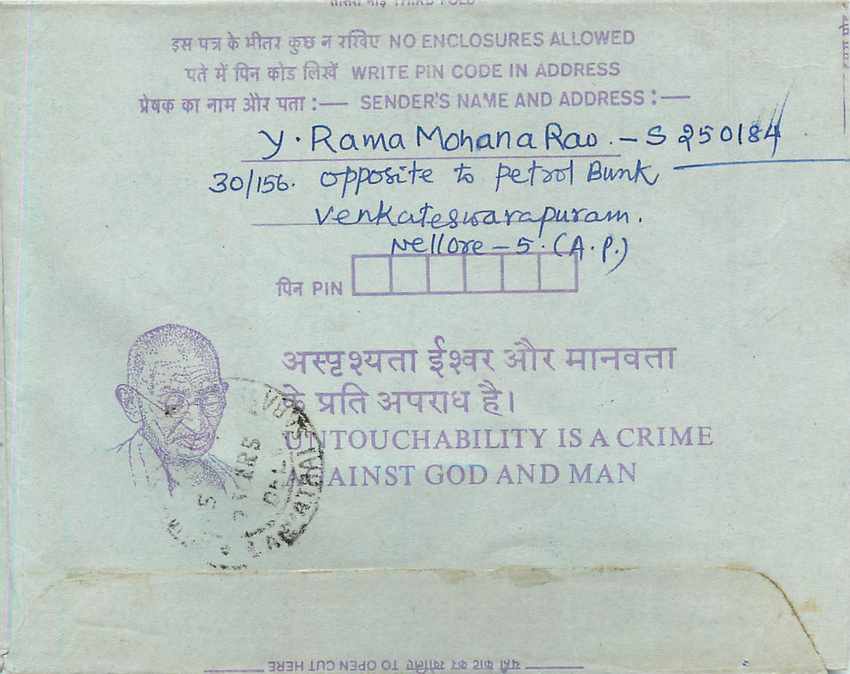 तीसरा मोड़ THIRD FOLD
इस पत्र के भीतर कुछ न रखिए NO ENCLOSURES ALLOWED
पते में पिन कोड लिखें WRITE PIN CODE IN ADDRESS
प्रेषक का नाम और पता :— SENDER'S NAME AND ADDRESS :—
Y. Rama Mohana Rao. - S 250184
30/156. opposite to petrol Bunk
Venkateswarapuram.
Nellore - 5. (A.P.)
पिन PIN
अस्पृश्यता ईश्वर और मानवता
के प्रति अपराध है।
UNTOUCHABILITY IS A CRIME
AGAINST GOD AND MAN
यहाँ काट कर खोलिए TO OPEN CUT HERE